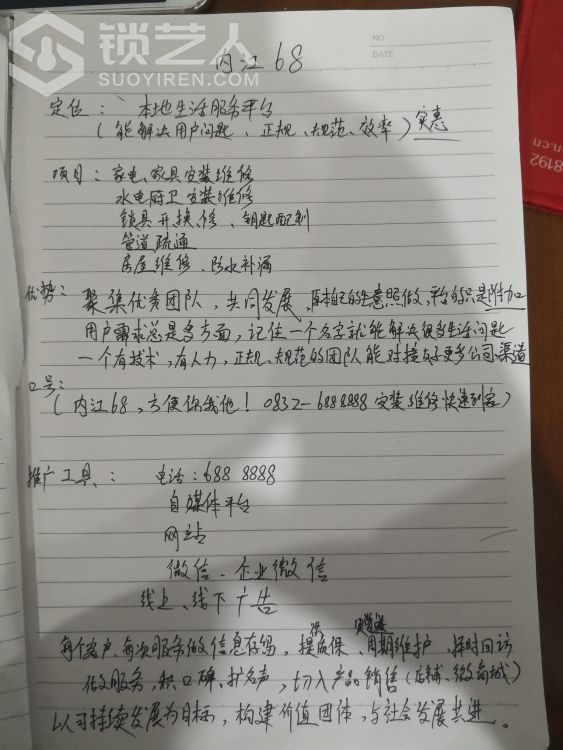 锁艺人
SUOYIREN.COM
内江68
NO.
DATE.
定位：本地生活服务平台
（能解决用户问题、正规、规范、效率）实惠
项目：家电、家具安装维修
水电厨卫安装维修
锁具开换修、钥匙配制
管道疏通
房屋维修、防水补漏
优势：聚集优秀团队，共同发展，原本自己的生意照做，平台的只是附加
用户需求总是多方面，记住一个名字就能解决很多生活问题
一个有技术，有人力，正规、规范的团队能对接更多公司渠道
口号：
（内江68，方便你我他！0832-6888888安装维修快速到家）
推广工具：电话：688 8888
自媒体平台
网站
微信、企业微信
线上、线下广告
每个客户、每次服务做信息存留，提供质保、周期维护，择时回访
做服务，积口碑、扩名声，切入产品销售（店铺、微商城）
以可持续发展为目标，构建价值团体，与社会发展共进。
8192